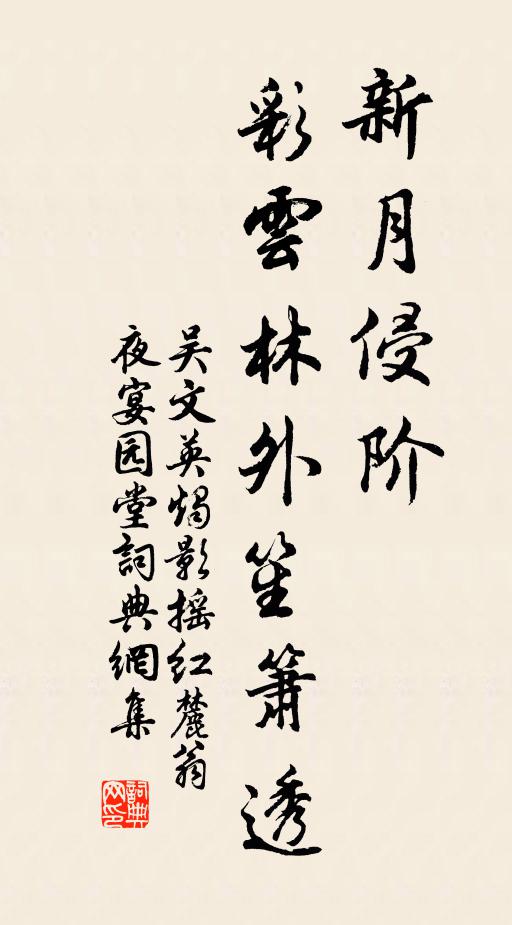 新月侵阶
彩雲林外笙簫透
吴文英燭影摇红麓翁
夜宴园堂詞典網集
詞典
网印